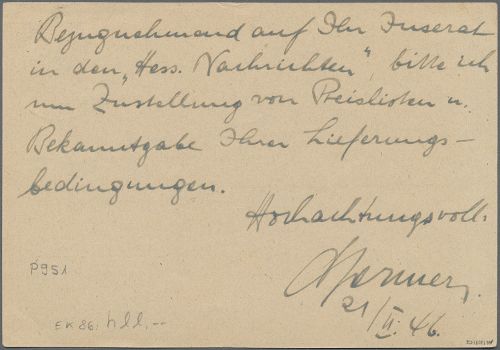 Bezugnehmend auf Ihr Inserat
in den „Hess. Nachrichten“, bitte ich
um Zustellung von Preislisten u.
Bekanntgabe Ihrer Lieferungs-
bedingungen.
Hochachtungsvoll:
21/II. 46.
P951
EK 86,